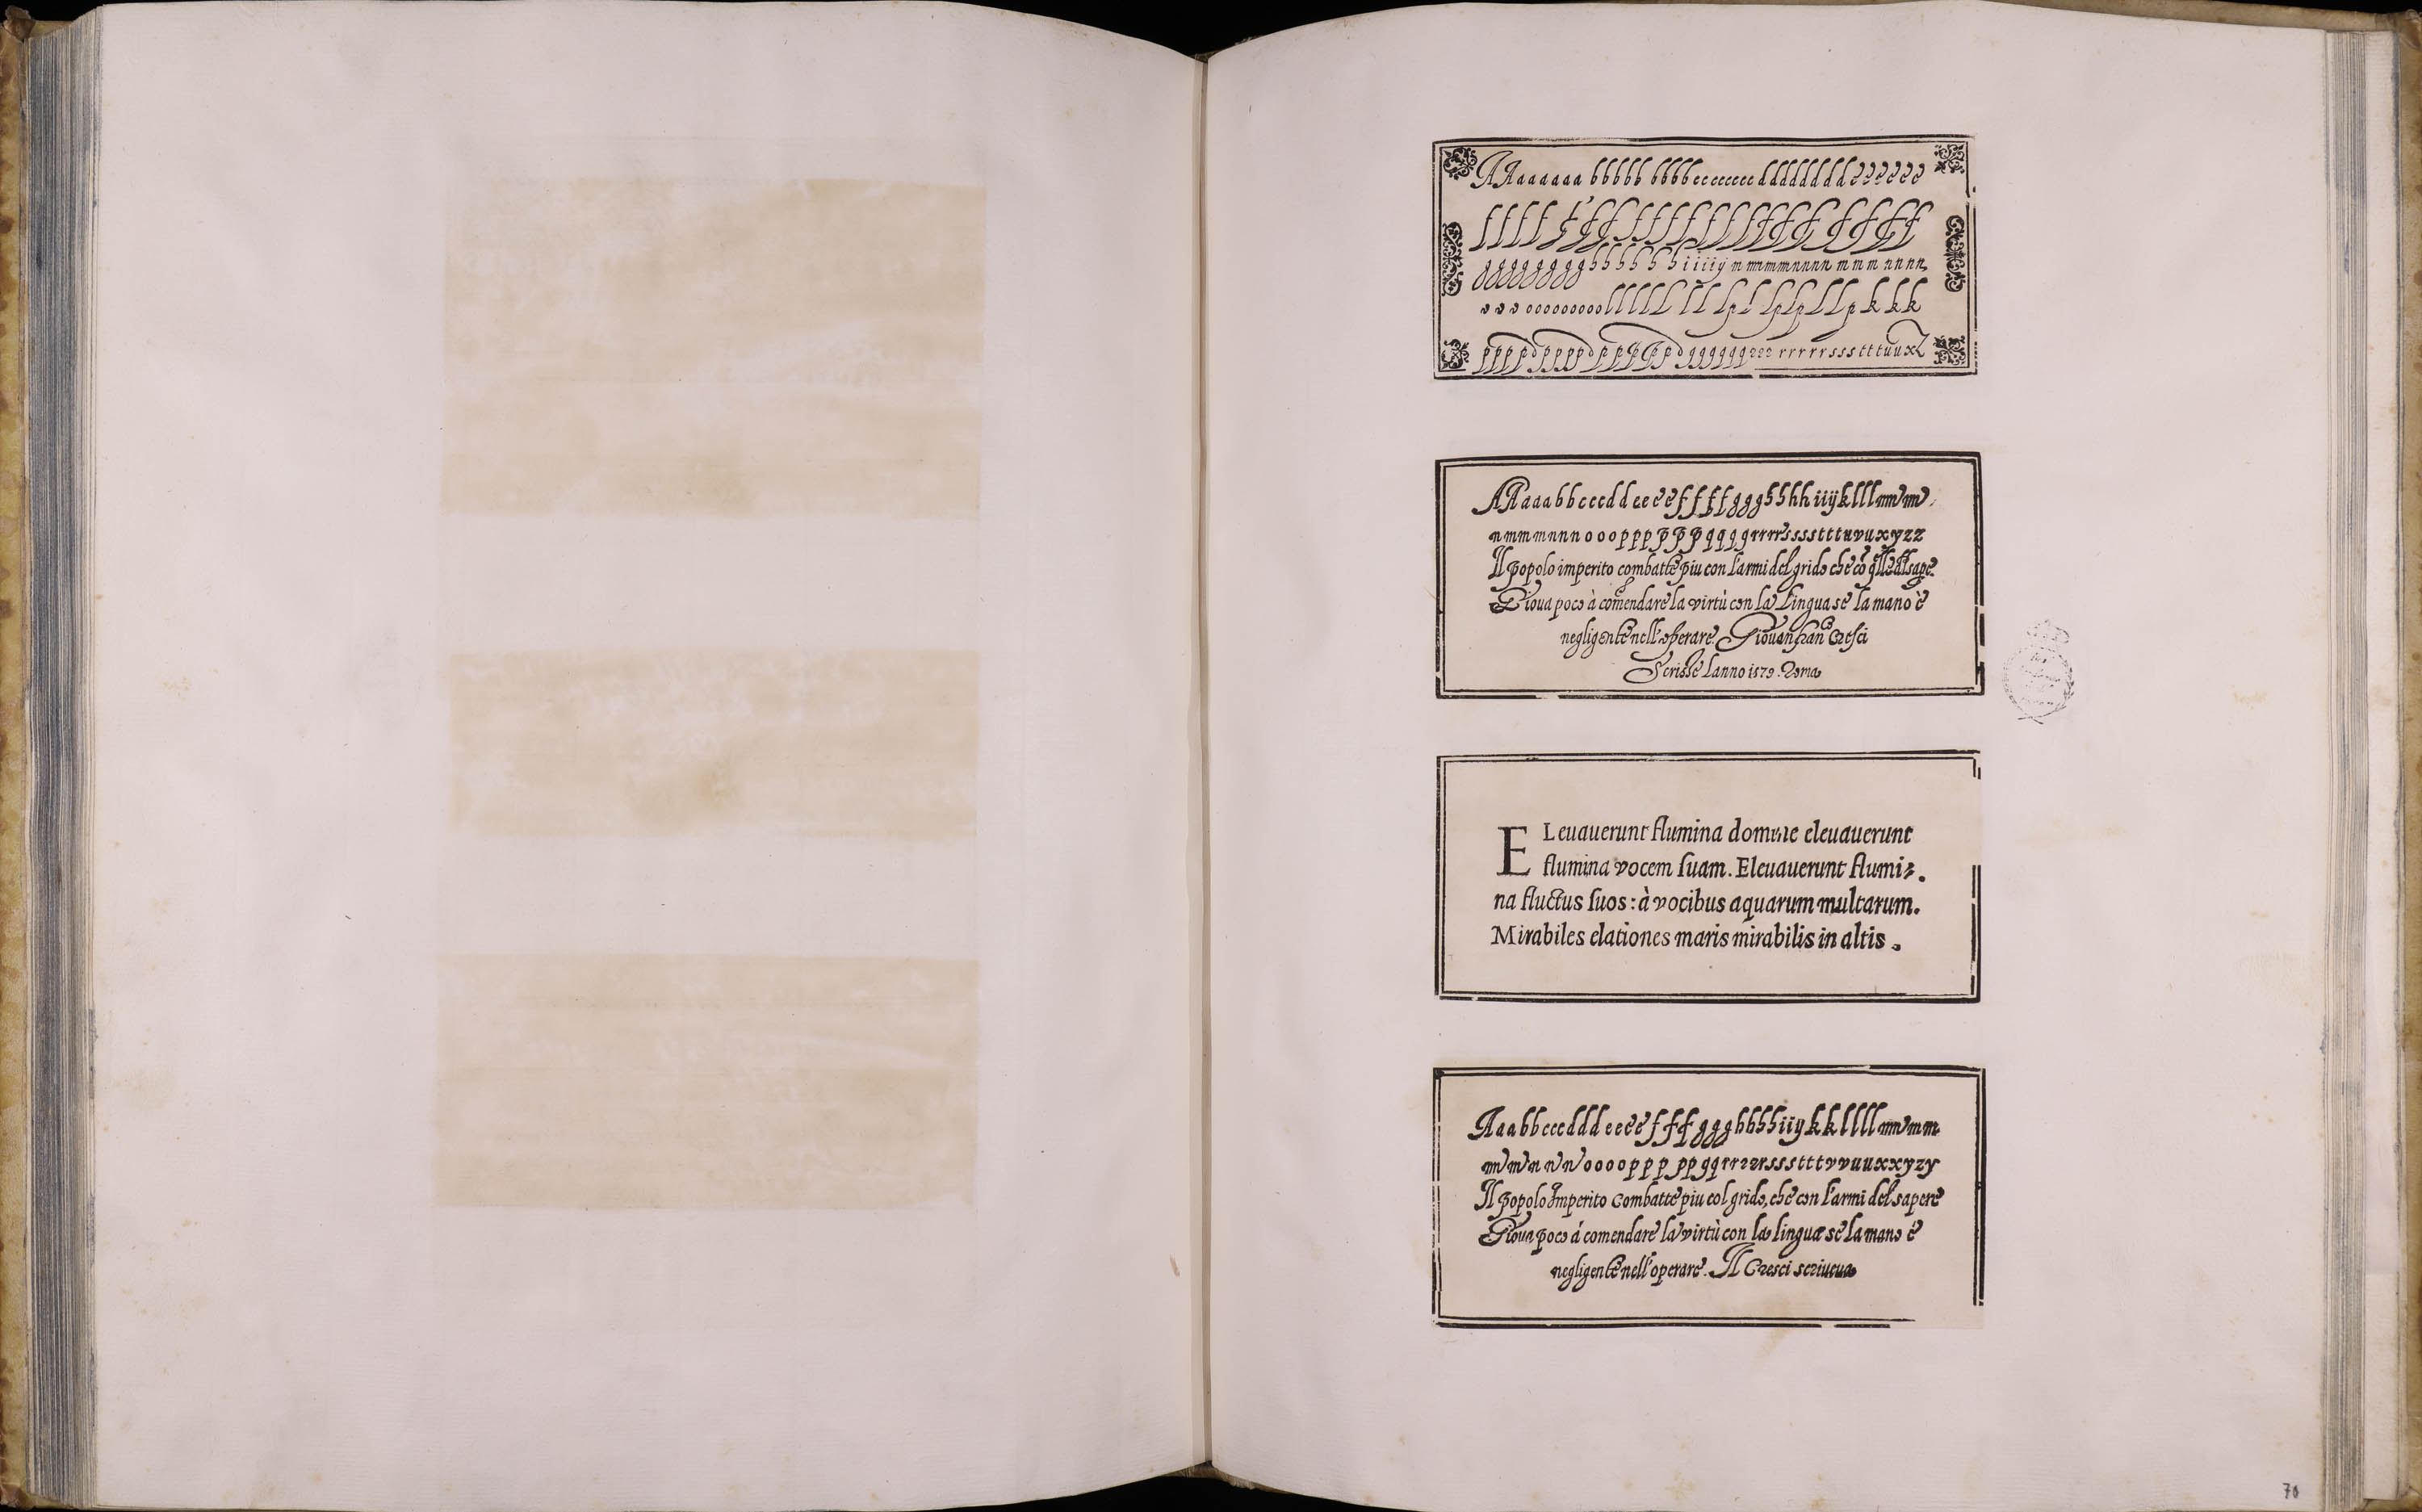 AAaaaaaa bbbbb bbbbccccccc dddddddd eeeeee
AAaaabbcccddeeeeffffggghhhhiiijklllmm
nmmmnnnooopppppppqqqqrrrrsssstttuvuxyzz
Il popolo imperito combatte piu con l'armi del grido che cō qlle del sape.
Gioua poco à comendare la virtù con la lingua se la mano è
negligente nell'operare. Giouanfran.co Cresci
Scrisse l'anno 1579. Roma
ELeuauerunt flumina domine eleuauerunt
flumina vocem suam. Eleuauerunt flumi-
na fluctus suos: à vocibus aquarum multarum.
Mirabiles elationes maris mirabilis in altis.
Aaabbcccdddeeeefffggghhhhiiijkkllllmmm
mmnnnoooopppppqqrrrrrssstttvvuuxxyzy
Il popolo Imperito Combatte piu col grido, che con l'armi del sapere
Gioua poco á comendare la virtù con la lingua se la mano é
negligente nell'operare. Il Cresci scriueua
70